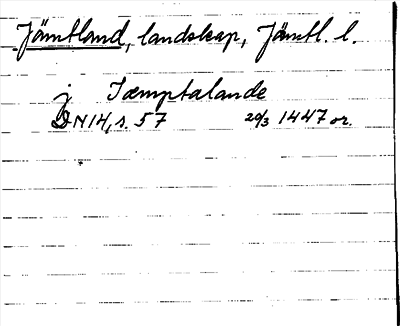 Jämtland, landskap, Jämtl. l.
j Iæmptalande
DN 14, s. 57 20/3 1447 or.